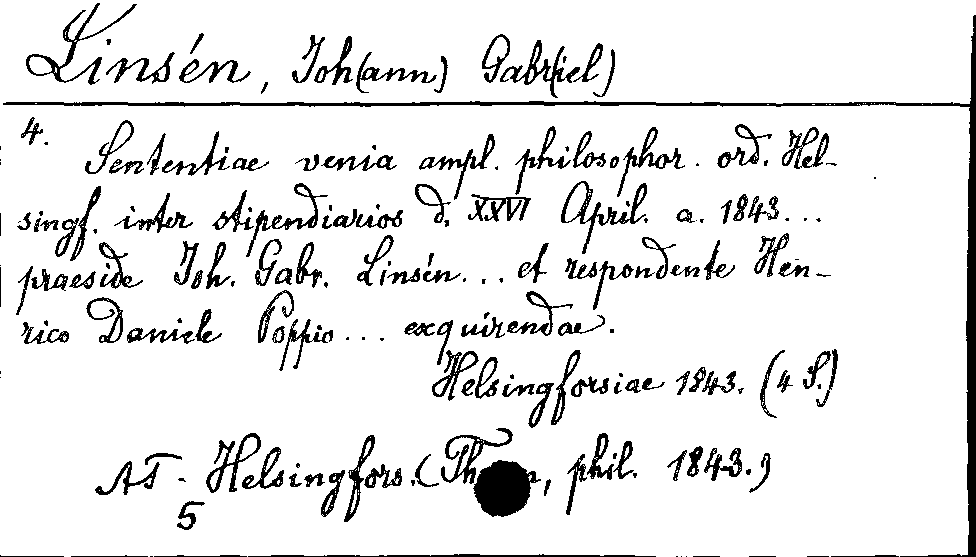 Linsén, Joh(ann) Gabr(iel)
4.
Sententiae venia ampl. philosophor. ord. Hel-
singf. inter stipendiarios d. XXVI April. a. 1843...
praeside Joh. Gabr. Linsén... et respondente Hen-
rico Daniele Poppio... exquirendae.
Helsingforsiae 1843. (4 S.)
AT. Helsingfors. ( phil. 1843.)
5